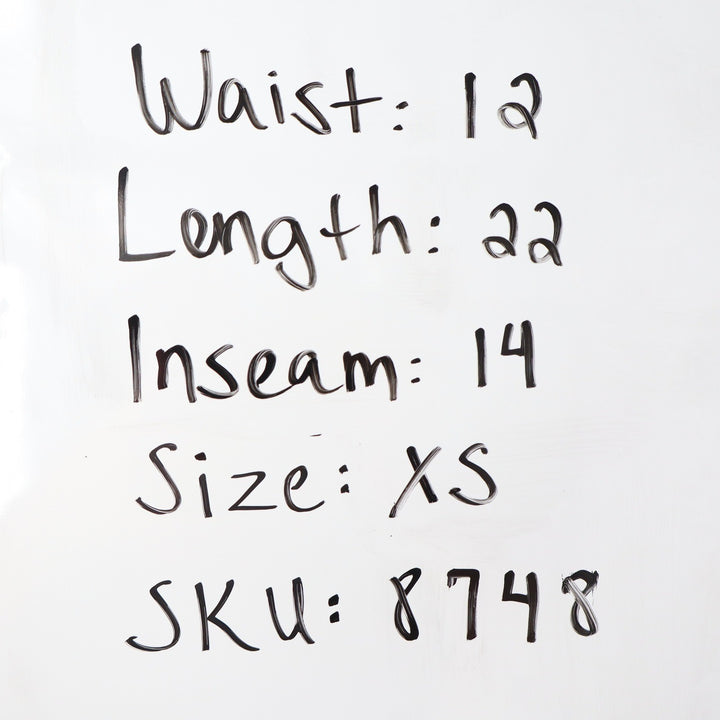 Waist: 12
Length: 22
Inseam: 14
Size: XS
SKU: 8748